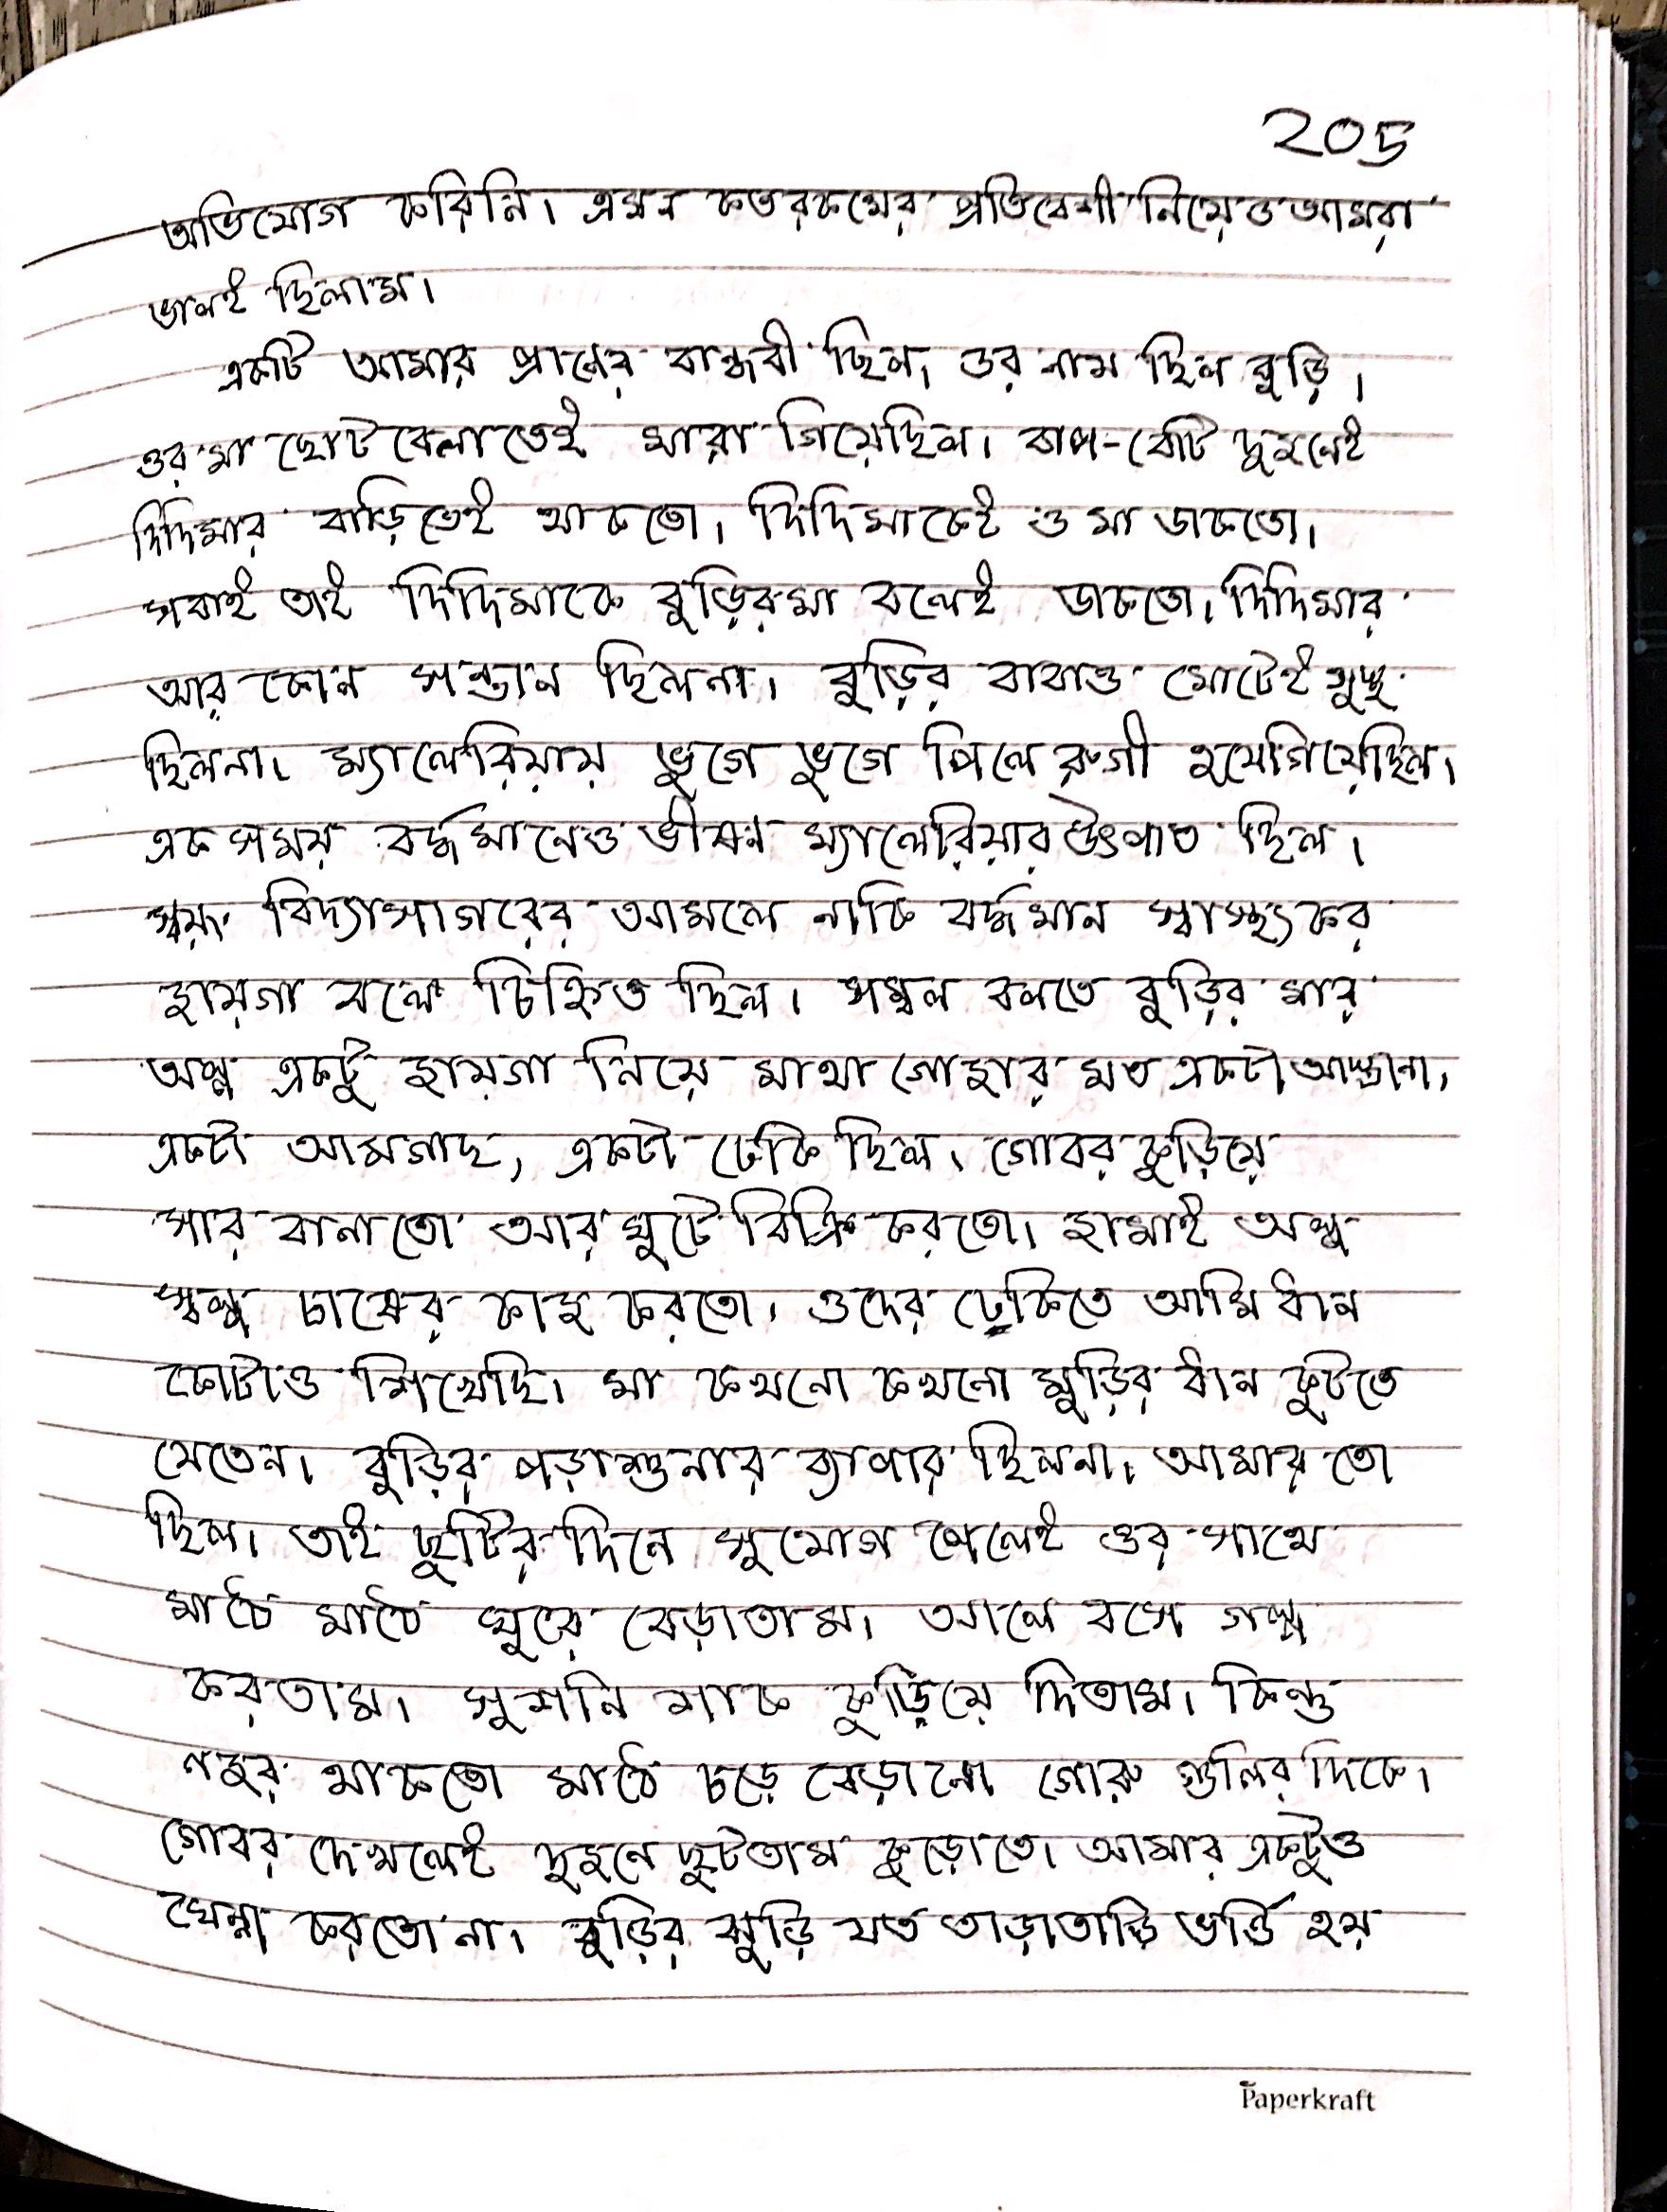 205
অভিযোগ করিনি। এমন কতরকমের প্রতিবেশী নিয়েও আমরা
ভালই ছিলাম।
একটি আমার প্রাণের বান্ধবী ছিল, ওর নাম ছিল বুড়ি।
ওর মা ছোট বেলাতেই মারা গিয়েছিল। বাপ-বেটি দুজনেই
দিদিমার বাড়িতেই থাকতো। দিদিমাকেই ও মা ডাকতো।
সবাই তাই দিদিমাকে বুড়িরমা বলেই ডাকতো। দিদিমার
আর কোন সন্তান ছিলনা। বুড়ির বাবাও মোটেই সুস্থ
ছিলনা। ম্যালেরিয়ায় ভুগে ভুগে পিলে রুগী হয়েগিয়েছিল।
এক সময় বর্দ্ধমানেও ভীষন ম্যালেরিয়ার উৎপাত ছিল।
স্বয়ং বিদ্যাসাগরের আমলে নাকি বর্দ্ধমান স্বাস্থ্যকর
জায়গা বলে চিহ্নিত ছিল। সম্বল বলতে বুড়ির মার
অল্প একটু জায়গা নিয়ে মাথা গোজার মত একটা আস্তানা,
একটা আমগাছ, একটা ঢেকি ছিল। গোবর কুড়িয়ে
সার বানাতো আর ঘুটে বিক্রি করতো। জামাই অল্প
স্বল্প চাষের কাজ করতো। ওদের ঢেকিতে আমি ধান
কোটাও শিখেছি। মা কখনো কখনো মুড়ির ধান কুটতে
যেতেন। বুড়ির পড়াশুনার ব্যাপার ছিলনা। আমার তো
ছিল। তাই ছুটির দিনে সুযোগ পেলেই ওর সাথে
মাঠে মাঠে ঘুরে বেড়াতাম। আলে বসে গল্প
করতাম। সুশনি শাক কুড়িয়ে দিতাম। কিন্তু
নজর থাকতো মাঠে চড়ে বেড়ানো গোরু গুলির দিকে।
গোবর দেখলেই দুজনে ছুটতাম কুড়োতে। আমার একটুও
ঘেন্না করতো না। বুড়ির ঝুড়ি যত তাড়াতাড়ি ভর্ত্তি হয়
Paperkraft